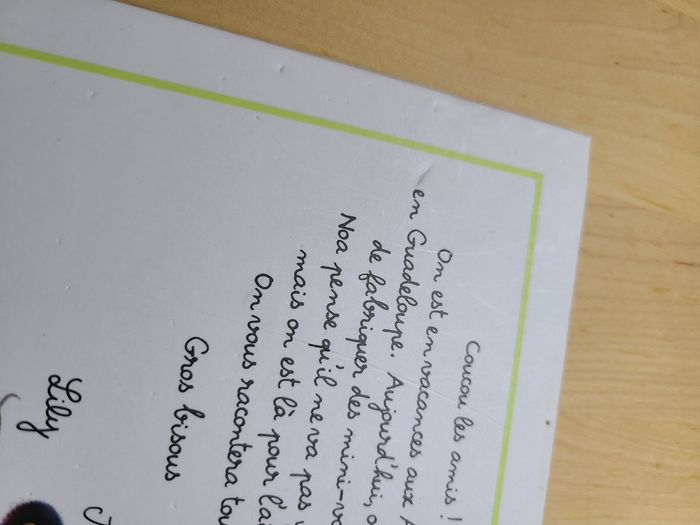 Coucou les amis !
On est en vacances aux
en Guadeloupe. Aujourd'hui,
de fabriquer des mini-
Noa pense qu'il ne va pas
mais on est là pour l'
On vous racontera
Gros bisous
Lily